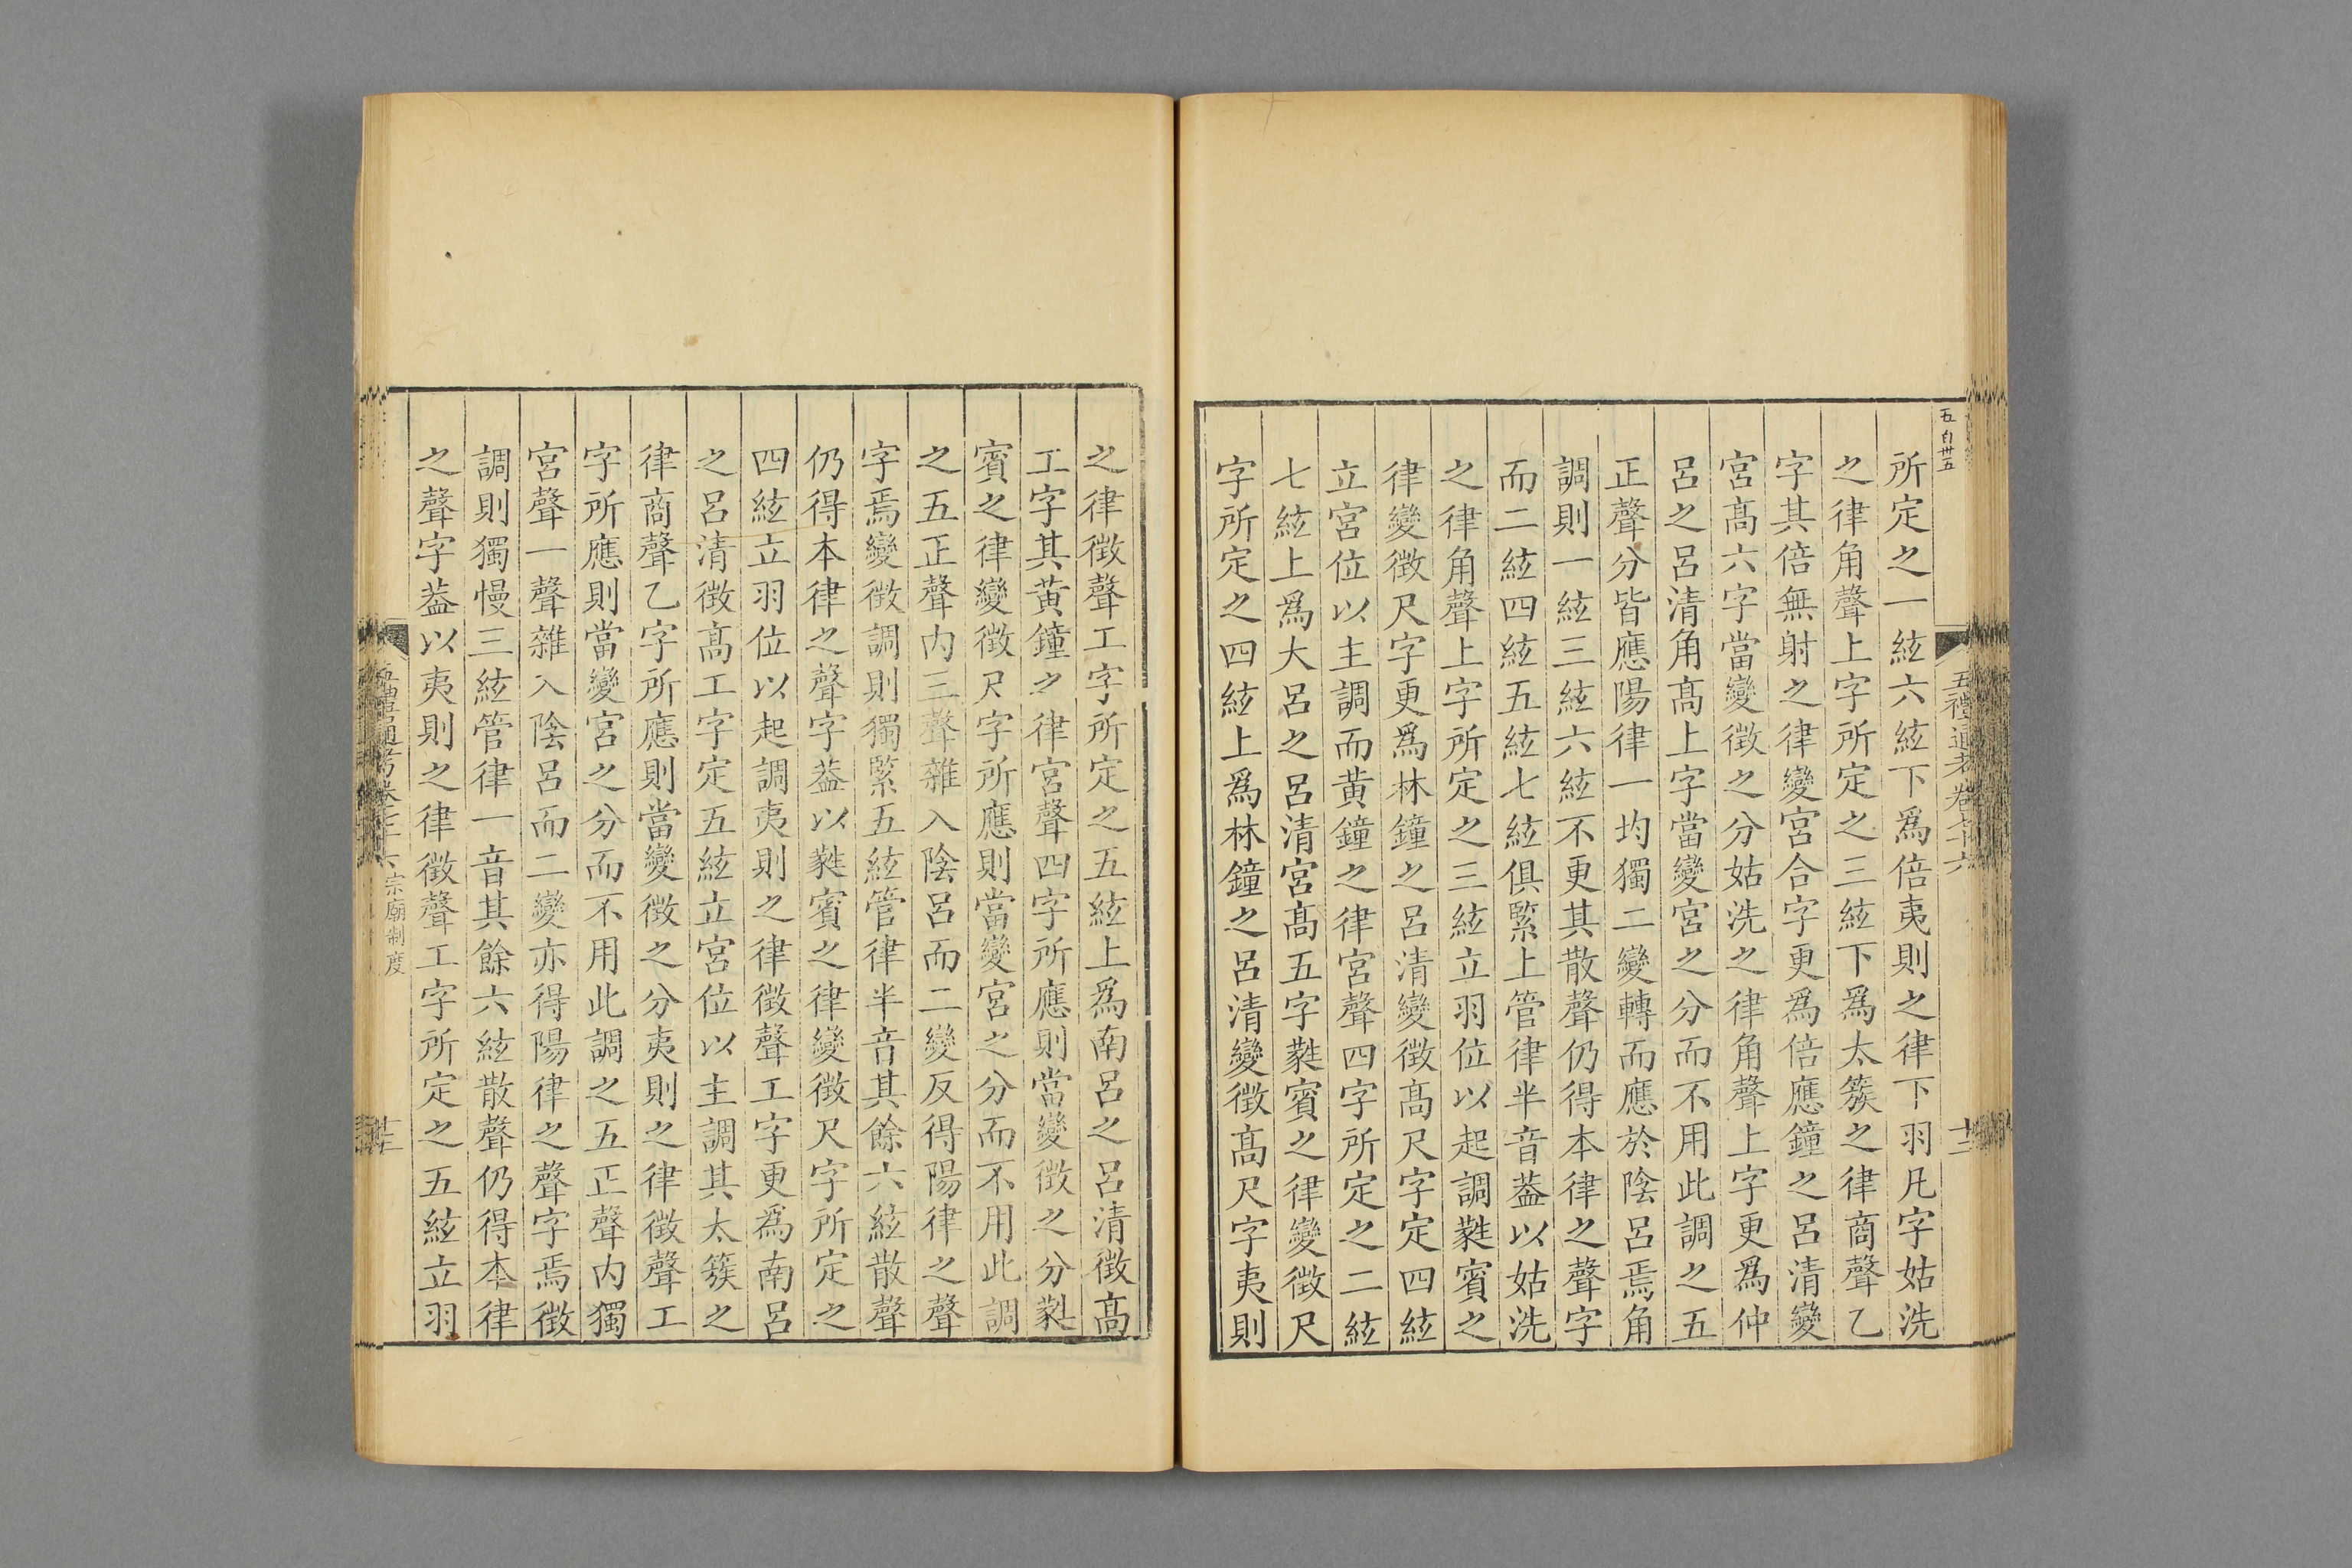 五百卅五
五禮通考卷七十六
十二
所定之一絃六絃下爲倍夷則之律下羽凡字姑洗
之律角聲上字所定之三絃下爲太簇之律商聲乙
字其倍無射之律變宮合字更爲倍應鐘之呂清變
宮髙六字當變徵之分姑洗之律角聲上字更爲仲
呂之呂清角髙上字當變宮之分而不用此調之五
正聲分皆應陽律一均獨二變轉而應於陰呂焉角
調則一絃三絃六絃不更其散聲仍得本律之聲字
而二絃四絃五絃七絃俱緊上管律半音葢以姑洗
之律角聲上字所定之三絃立羽位以起調蕤賓之
律變徵尺字更爲林鐘之呂清變徵髙尺字定四絃
立宮位以主調而黄鐘之律宮聲四字所定之二絃
七絃上爲大呂之呂清宮髙五字蕤賓之律變徵尺
字所定之四絃上爲林鐘之呂清變徵髙尺字夷則
之律徵聲工字所定之五絃上爲南呂之呂清徵髙
工字其黄鐘之律宮聲四字所應則當變徵之分蕤
賓之律變徵尺字所應則當變宮之分而不用此調
之五正聲内三聲雜入陰呂而二變反得陽律之聲
字焉變徵調則獨緊五絃管律半音其餘六絃散聲
仍得本律之聲字葢以蕤賓之律變徵尺字所定之
四絃立羽位以起調夷則之律徵聲工字更爲南呂
之呂清徵髙工字定五絃立宮位以主調其太簇之
律商聲乙字所應則當變徵之分夷則之律徵聲工
字所應則當變宮之分而不用此調之五正聲内獨
宮聲一聲雜入陰呂而二變亦得陽律之聲字焉徵
調則獨慢三絃管律一音其餘六絃散聲仍得本律
之聲字葢以夷則之律徵聲工字所定之五絃立羽
宗廟制度